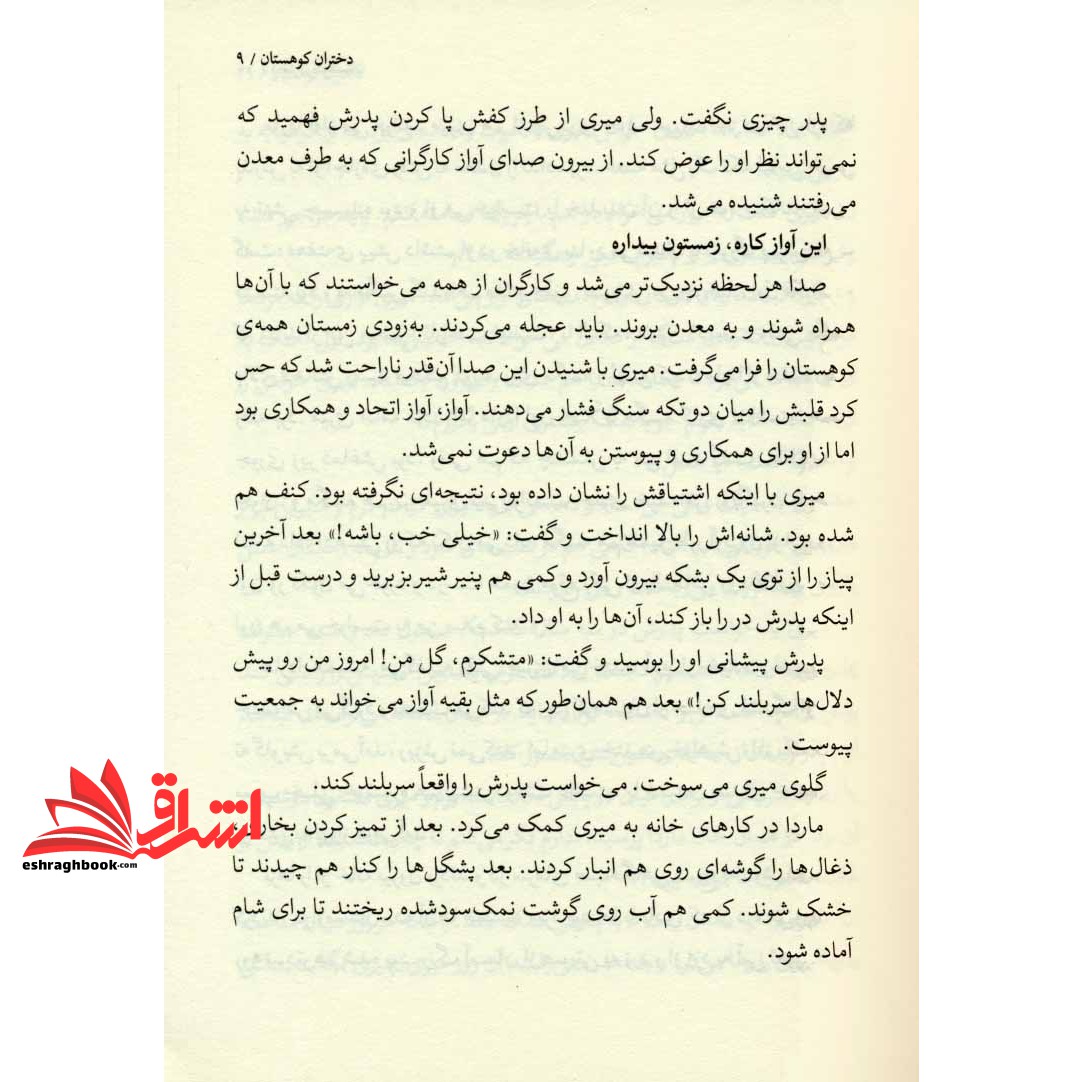 دختران کوهستان / ۹
پدر چیزی نگفت. ولی میری از طرز کفش پا کردن پدرش فهمید که
نمی‌تواند نظر او را عوض کند. از بیرون صدای آواز کارگرانی که به طرف معدن
می‌رفتند شنیده می‌شد.
این آواز کاره، زمستون بیداره
صدا هر لحظه نزدیک‌تر می‌شد و کارگران از همه می‌خواستند که با آن‌ها
همراه شوند و به معدن بروند. باید عجله می‌کردند. به‌زودی زمستان همه‌ی
کوهستان را فرا می‌گرفت. میری با شنیدن این صدا آن‌قدر ناراحت شد که حس
کرد قلبش را میان دو تکه سنگ فشار می‌دهند. آواز، آواز اتحاد و همکاری بود
اما از او برای همکاری و پیوستن به آن‌ها دعوت نمی‌شد.
میری با اینکه اشتیاقش را نشان داده بود، نتیجه‌ای نگرفته بود. کنف هم
شده بود. شانه‌اش را بالا انداخت و گفت: «خیلی خب، باشه!» بعد آخرین
پیاز را از توی یک بشکه بیرون آورد و کمی هم پنیر شیر بز برید و درست قبل از
اینکه پدرش در را باز کند، آن‌ها را به او داد.
پدرش پیشانی او را بوسید و گفت: «متشکرم، گل من! امروز من رو پیش
دلال‌ها سربلند کن!» بعد هم همان‌طور که مثل بقیه آواز می‌خواند به جمعیت
پیوست.
گلوی میری می‌سوخت. می‌خواست پدرش را واقعاً سربلند کند.
ماردا در کارهای خانه به میری کمک می‌کرد. بعد از تمیز کردن بخاری،
ذغال‌ها را گوشه‌ای روی هم انبار کردند. بعد پشگل‌ها را کنار هم چیدند تا
خشک شوند. کمی هم آب روی گوشت نمک‌سودشده ریختند تا برای شام
آماده شود.
اشراق
eshraghbook.com